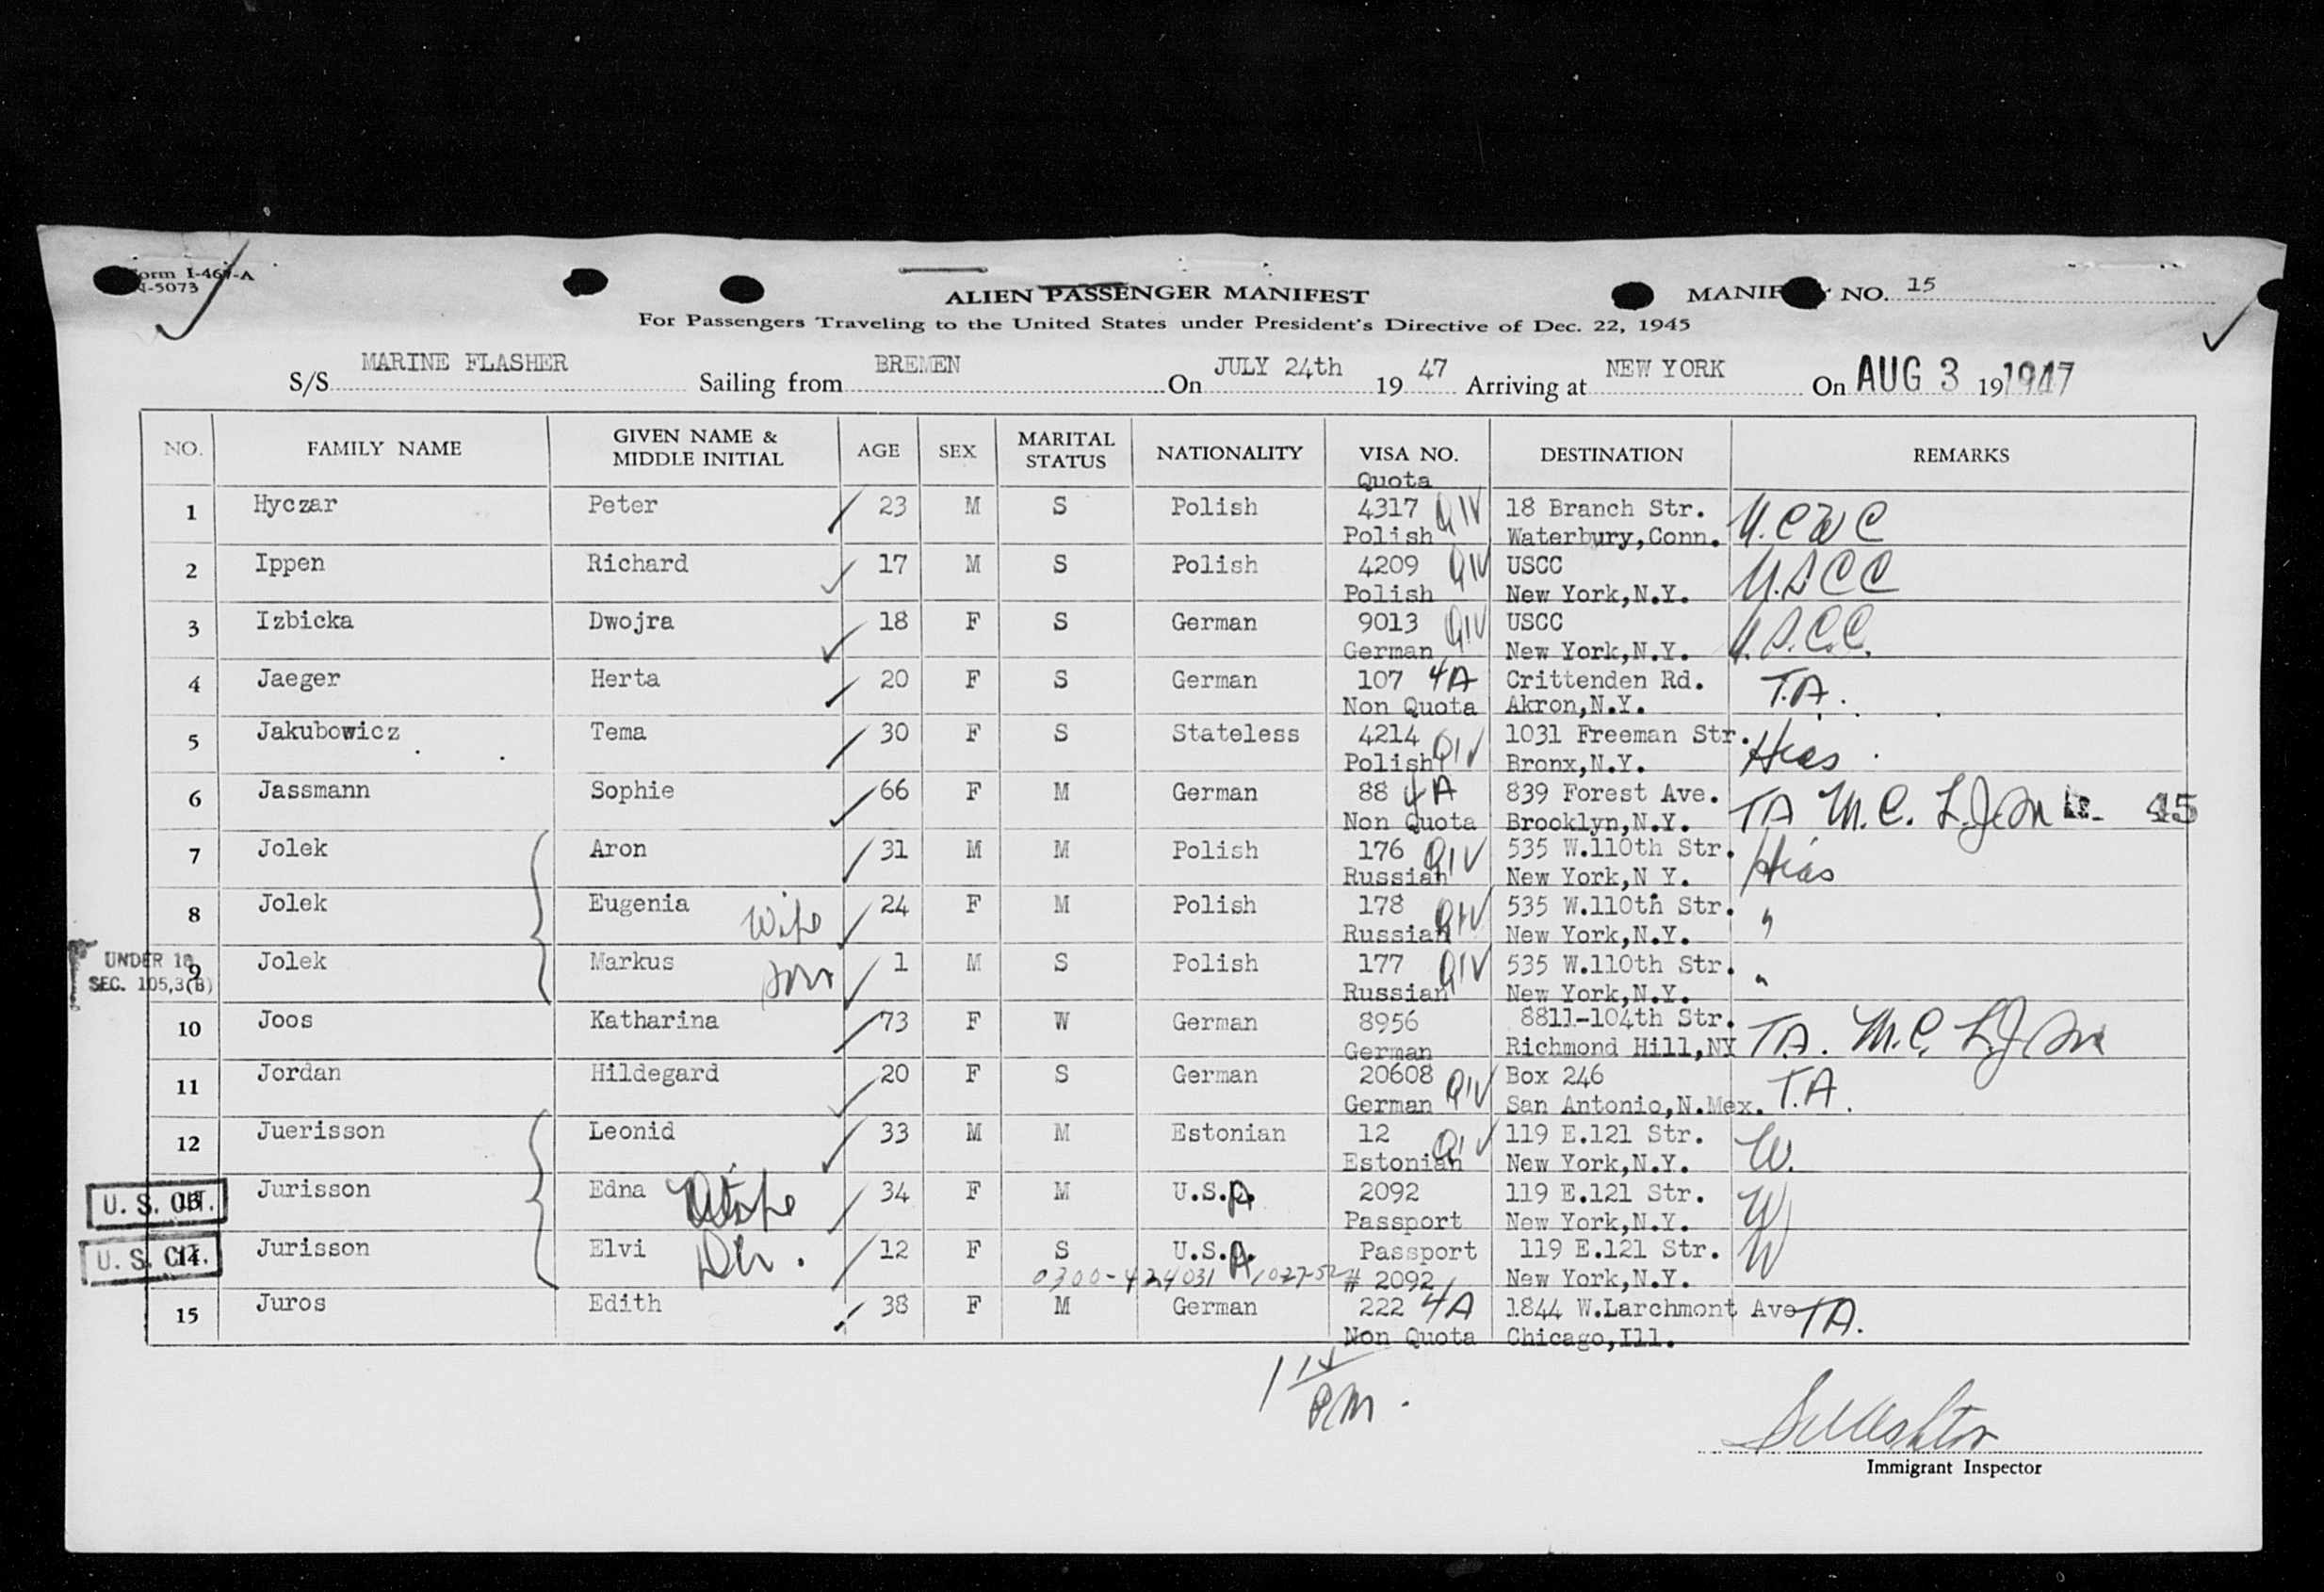 Form I-467-A
N-5073
ALIEN PASSENGER MANIFEST
MANIFEST NO. 15
For Passengers Traveling to the United States under President's Directive of Dec. 22, 1945
S/S MARINE FLASHER Sailing from BREMEN On JULY 24th 19 47 Arriving at NEW YORK On AUG 3 19 1947
NO. FAMILY NAME GIVEN NAME & MIDDLE INITIAL AGE SEX MARITAL STATUS NATIONALITY VISA NO. DESTINATION REMARKS
Quota
1 Hyczar Peter 23 M S Polish 4317 QIV 18 Branch Str. U.C W C
Polish Waterbury,Conn.
2 Ippen Richard 17 M S Polish 4209 QIV USCC U.S C C
Polish New York,N.Y.
3 Izbicka Dwojra 18 F S German 9013 QIV USCC U.S.C.C.
German New York,N.Y.
4 Jaeger Herta 20 F S German 107 4A Crittenden Rd. T.A.
Non Quota Akron,N.Y.
5 Jakubowicz Tema 30 F S Stateless 4214 QIV 1031 Freeman Str. Hias
Polish Bronx,N.Y.
6 Jassmann Sophie 66 F M German 88 4A 839 Forest Ave. TA M.C. 45
Non Quota Brooklyn,N.Y.
7 Jolek Aron 31 M M Polish 176 QIV 535 W.110th Str. Hias
Russian New York,N Y.
8 Jolek Eugenia Wife 24 F M Polish 178 QIV 535 W.110th Str. "
Russian New York,N.Y.
UNDER 18
SEC. 105,3(B)
9 Jolek Markus son 1 M S Polish 177 QIV 535 W.110th Str. "
Russian New York,N.Y.
10 Joos Katharina 73 F W German 8956 8811-104th Str. T.A. M.C.
German Richmond Hill,NY
11 Jordan Hildegard 20 F S German 20608 QIV Box 246 T.A.
German San Antonio,N.Mex.
12 Juerisson Leonid 33 M M Estonian 12 QIV 119 E.121 Str. W.
Estonian New York,N.Y.
U. S. CIT. 13 Jurisson Edna Wife 34 F M U.S.A. 2092 119 E.121 Str. W
Passport New York,N.Y.
U. S. CIT. 14 Jurisson Elvi Dtr. 12 F S U.S.A. Passport 119 E.121 Str. W
0300-424031 1027-52 # 2092 New York,N.Y.
15 Juros Edith 38 F M German 222 4A 1844 W.Larchmont Ave TA.
Non Quota Chicago,Ill.
PM.
Immigrant Inspector